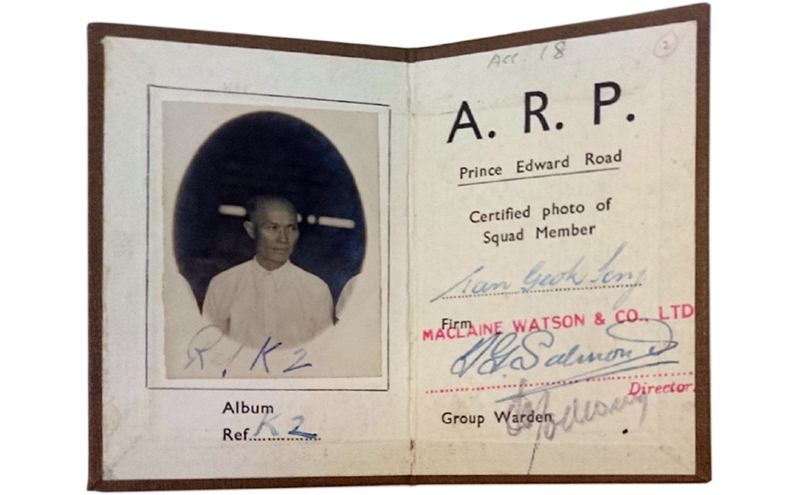 Ref K2
Album
Ref. K2
Acc. 18
2
A. R. P.
Prince Edward Road
Certified photo of
Squad Member
Tan Geok Seng
Firm
MACLAINE WATSON & CO., LTD
Salmond
Director.
Group Warden